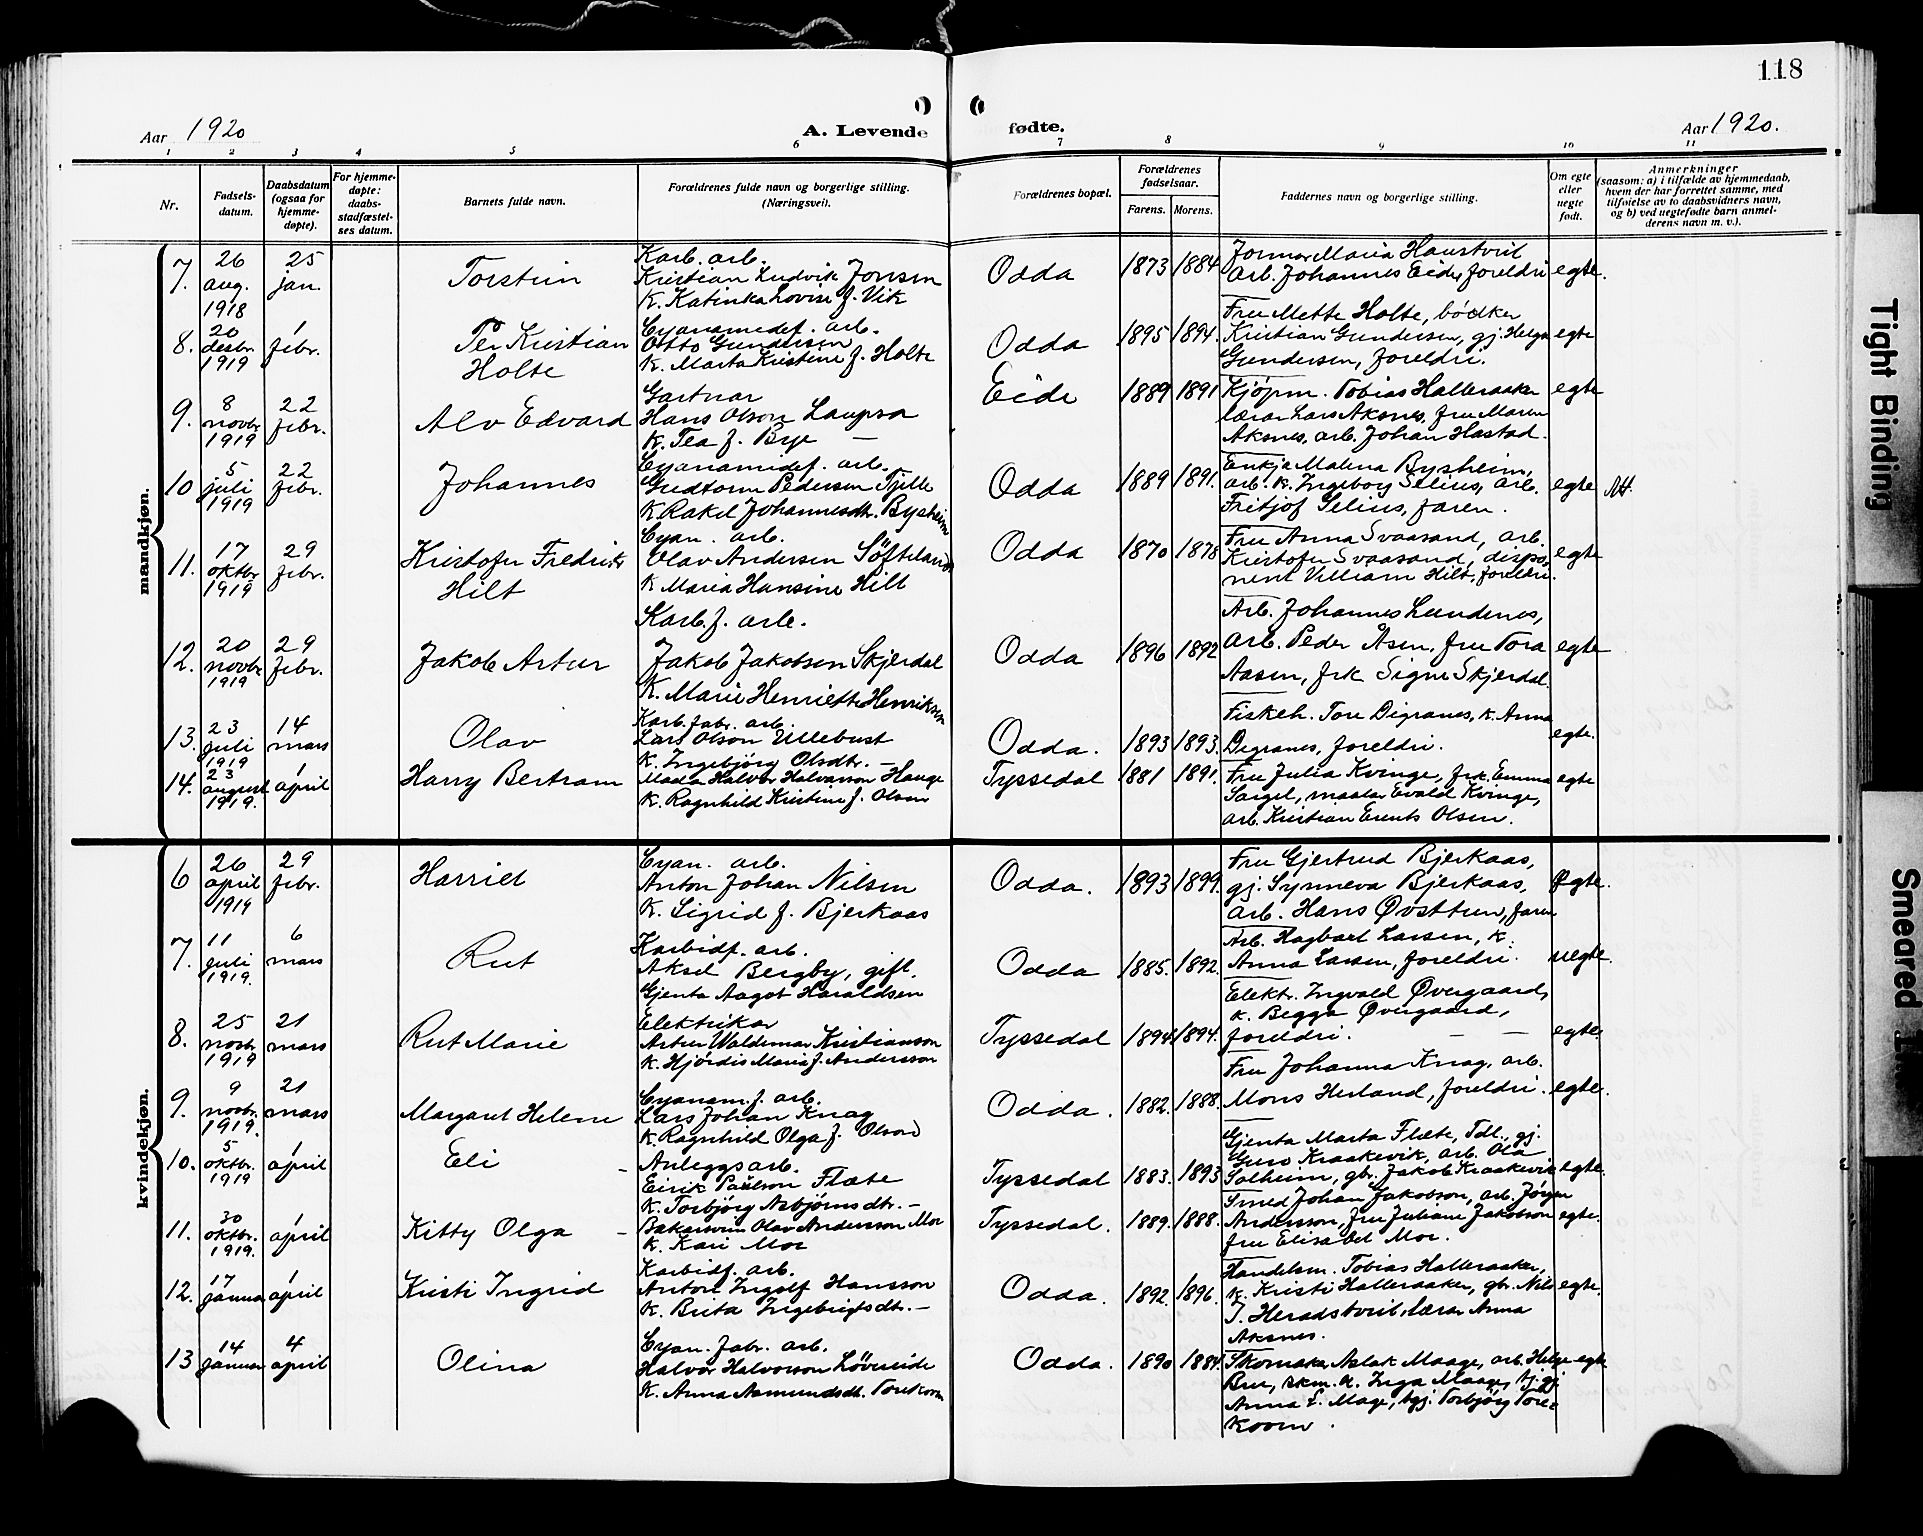 118
Aar 1920
A. Levende fødte.
Aar 1920.
1 2 3 4 5 6 7 8 9 10 11
Nr.
Fødsels-
datum.
Daabsdatum
(ogsaa for
hjemme-
døpte).
For hjemme-
døpte:
daabs-
stadfæstel-
ses datum.
Barnets fulde navn.
Forældrenes fulde navn og borgerlige stilling.
(Næringsvei).
Forældrenes bopæl.
Forældrenes
fødselsaar.
Farens. Morens.
Faddernes navn og borgerlige stilling.
Om egte
eller
uegte
født.
Anmerkninger
(saasom: a) i tilfælde av hjemmedaab,
hvem der har forrettet samme, med
tilføielse av to daabsvidners navn,
og b) ved uegtefødte barn anmel-
derens navn m. v.).
mandkjøn.
7. 26 aug. 1918 25 jan. Torstein
Karb. arb.
Kristian Ludvik Jonsen
K. Katinka Lovise f. Vik
Odda 1873 1884
Maria Haustveit
Arb. Johannes Eide, foreldri egte.
8. 20 desbr. 1919 1 febr. Per Kristian
Holte
Cyanamidef. arb.
Otto Gundersen
K. Marta Kristine f. Holte
Odda 1895 1894.
Fru Mette Holte, bödker
Kristian Gundersen, gj. Helga egte
Gundersen, foreldri.
9. 8 novbr. 1919 22 febr. Alv Edvard
Gartnar
Hans Olson Laupsa
K. Tea f. Brye —
Eide 1889 1891
Kjöpm. Tobias Halleraaker egte
lærar Lars Aksnes, fru Maren
Aksnes, arb. Johan Hastad.
10 5 juli 1919 22 febr. Johannes
Cyanamidef. arb.
Gudtorm Pedersen Tjille
K. Rakel Johannesdtr. Bysheim
Odda 1889 1891.
Enkja Malena Bysheim,
arb. K. Ingeborg Selius, arb. egte
Fritjof Selius, faren.
11. 17 oktbr. 1919 29 febr. Kristofer Fredrik
Hilt
Cyan. arb.
Olav Andersen Söfteland
K. Maria Hansine Hilt
Odda 1870 1878
Fru Anna Svaasand, arb.
Kristofer Svaasand, dispo- egte
nent Villiam Hilt, foreldri.
12. 20 novbr. 1919 29 febr. Jakob Artur
Karb. f. arb.
Jakob Jakobsen Skjerdal
K. Marie Henriette Henriksen
Odda 1896 1892
Arb. Johannes Lundenes,
Arb. Peder Åsen, fru Tora egte
Aasen, frk Signe Skjerdal.
13. 23 juli 1919 14 mars Olav
Karb. fabr. arb.
Lars Olson Ullebust
K. Ingebjörg Olsdtr. —
Odda. 1893 1893.
Fiskeh. Tore Digranes, K. Anna
Digranes, foreldri. egte.
14. 23 august 1919. 1 april Harry Bertram
Halvor Halvorson Hauge
K. Ragnhild Kristine f. Olsen
Tyssedal 1881 1891.
Fru Julia Kvinge, frk. Emma egte
maalar Evald Kvinge,
arb. Kristian Olsen.
kvindekjøn.
6 26 april 1919 29 febr. Harriet
Cyan. arb.
Anton Johan Nilsen
K. Sigrid f. Bjerkaas
Odda. 1893 1899.
Fru Gjertrud Bjerkaas,
gj. Synneva Bjerkaas, egte.
Arb. Hans Øvsttun, faren
7. 11 juli 1919. 6 mars Rut
Karbidf. arb.
Aksel Bergby, gift.
Gjenta Aagot Haraldsen
Odda 1885. 1892.
Arb. Hagbart Larsen, K.
Anna Larsen, foreldri. uegte.
8. 25 novbr. 1919 21 mars Rut Marie
Elektrikar
Artur Waldemar Kristianson
K. Hjördis Maria f. Andersson
Tyssedal 1894 1894.
Elektr. Ingvald Øvergaard,
K. Begga Øvergaard,
foreldri. — — egte.
9. 9 novbr. 1919. 21 mars Margaret Helene
Cyanam. f. arb.
Lars Johan Knag
K. Ragnhild Olga f. Olson
Odda. 1882. 1888.
Fru Johanna Knag, arb.
Mons Herland, foreldri. egte.
10. 5 oktbr. 1919 1 april Eli
Anleggsarb.
Eirik Paulson Flæte
K. Torbjörg Asbjörnsdtr. —
Tyssedal 1883. 1893
Gjenta Marta Flæte, Tdl., gj.
Guro Kraakevik, arb. Ola
Solheim, gbr. Jakob Kraakevik egte.
11. 30 oktbr. 1919. 1 april Kitty Olga
Bakarsvein Olav Andersson Mor
K. Kari Mor
Tyssedal. 1889. 1888.
Smed Johan Jakobson, arb. Jörgen
Andersson, fru Juliane Jakobson egte.
fru Elisabet Mor.
12. 17 januar 1 april Kristi Ingrid
Karbidf. arb.
Anton Ingolf Hansson
K. Brita Ingebrigtsdtr. —
Odda. 1892. 1896.
Handelsm. Tobias Halleraaker,
K. Kristi Halleraaker, gbr. Nils egte.
J. Heradstveit, lærar Anna
Aksnes.
13 14 januar 4 april Olina
Cyan. fabr. arb.
Halvor Halvorson Löyneide
K. Anna Asmundsdt. Torekoven
Odda. 1890 1884.
Skomaka Aslak Maage, arb. Helge egte
Bru, skm. K. Inga Maage, tj. gj
Anna L. Mage, tgj. Torbjörg Tore-
koven.
Tight Binding
Smeared